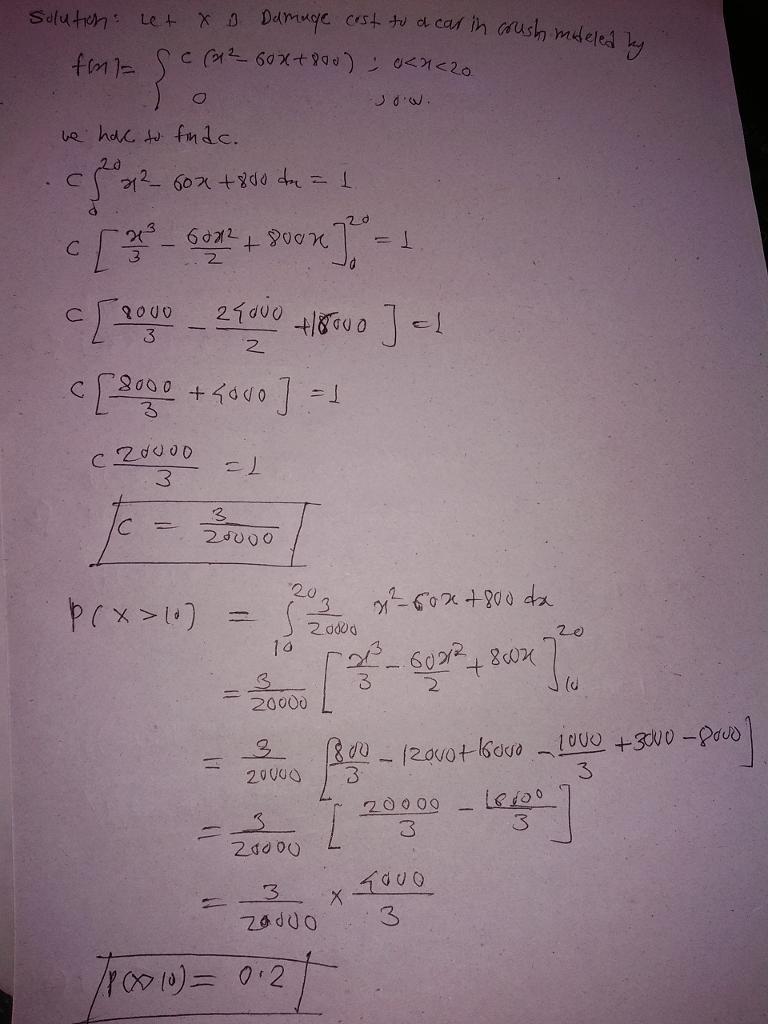 Solution: Let X is Damage cost to a car in crush modeled by
f(x) = { c (x² - 60x + 800) ; 0<x<20
0 ; o.w.
we have to find c.
c ∫₀²⁰ x² - 60x + 800 dx = 1
c [ x³/3 - 60x²/2 + 800x ]₀²⁰ = 1
c [ 8000/3 - 24000/2 + 16000 ] = 1
c [ 8000/3 + 4000 ] = 1
c 20000/3 = 1
c = 3/20000
P(X>10) = ∫₁₀²⁰ 3/20000 x² - 60x + 800 dx
= 3/20000 [ x³/3 - 60x²/2 + 800x ]₁₀²⁰
= 3/20000 [ 800/3 - 12000 + 16000 - 1000/3 + 3000 - 8000 ]
= 3/20000 [ 20000/3 - 16000/3 ]
= 3/20000 × 4000/3
P(X>10) = 0.2